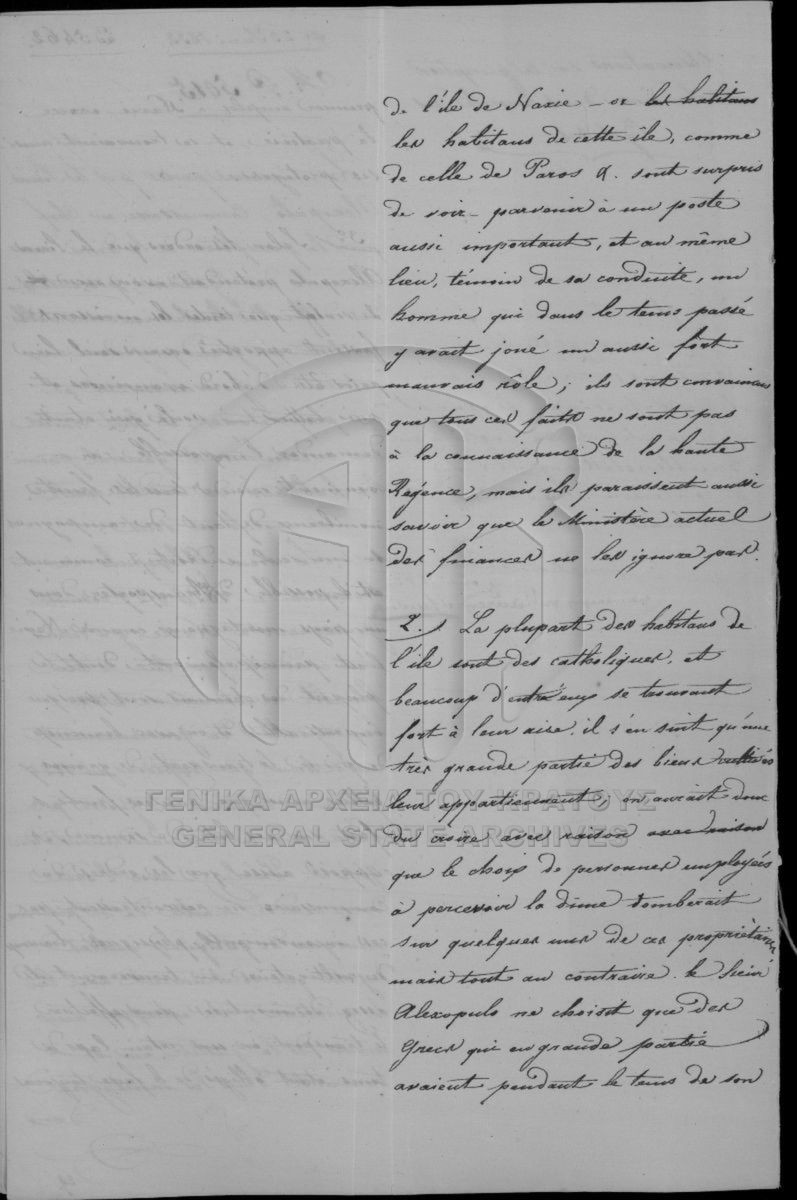 de l'île de Naxie – or les habitans
les habitans de cette île, comme
de celle de Paros &. sont surpris
de voir – parvenir à un poste
aussi important, et au même
lieu, témoin de sa conduite, un
homme qui dans le tems passé
y avait joué un aussi fort
mauvais rôle; ils sont convaincus
que tous ces faits ne sont pas
à la connaissance de la haute
Régence, mais ils paraissent aussi
savoir que le Ministère actuel
des finances ne les ignore pas.
2.) La plupart des habitans de
l'île sont des catholiques, et
beaucoup d'entr'eux se trouvant
fort à leur aise. il s'en suit qu'une
très grande partie des bien
leur appartiennent; on aurait donc
du croire avec raison avec raison
que le choix de personnes employés
à percevoir la dîme tomberait
sur quelques uns de ces propriétaires,
mais tout au contraire. le Sieur
Alexopulo ne choisit que des
Grecs qui en grande partie
avaient pendant le tems de son
ΓΕΝΙΚΑ ΑΡΧΕΙΑ ΤΟΥ ΚΡΑΤΟΥΣ
GENERAL STATE ARCHIVES